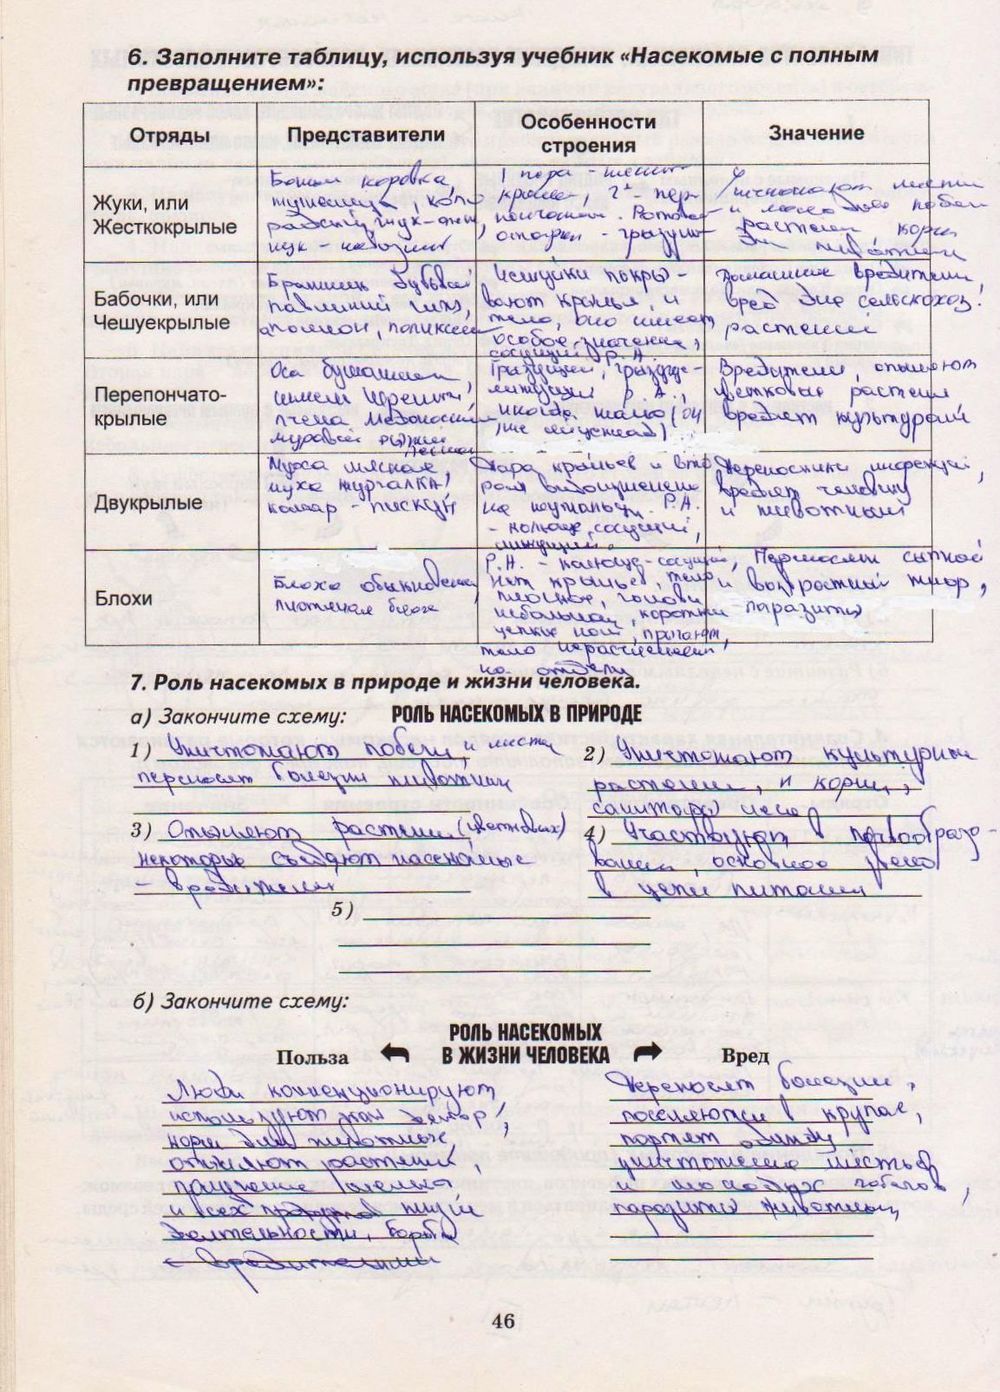 6. Заполните таблицу, используя учебник «Насекомые с полным
превращением»:
Отряды
Представители
Особенности
строения
Значение
Жуки, или
Жесткокрылые
Божья коровка,
жук - навозник
1 пара - жестк
крылья, 2 - пер
Уничтожают листья
и молодые побеги
растений корм
для животных
Бабочки, или
Чешуекрылые
Бражник
павлиний глаз,
аполлон, поликсена
Чешуйки покры-
вают крылья и
тело, оно имеет
особое значение,
сосущий Р. А.
Домашние вредители
вред для сельскохоз.
растений
Перепончато-
крылые
Оса бумажная,
пчела медоносная,
муравей рыжий
лесной
Грызущий, грызуще-
лижущий Р. А.,
иногда жало (он
же яйцеклад)
Вредители, опыляют
цветковые растения
вредят культурам
Двукрылые
Муха мясная,
муха журчалка,
комар - пискун
Пара крыльев и вто
рая видоизменена
на жужальц. Р.А.
- колюще, сосущий,
лижущий.
Переносчики инфекций,
вредят человеку
и животным
Блохи
Блоха обыкновенная
Р.А. - колюще-сосущий,
нет крыльев, тело
плоское, голова
небольшая, коротки
цепкие ноги, прыгают,
тело нерасчленено
на отделы
Переносят сыпной
и возвратный тиф,
- паразиты
7. Роль насекомых в природе и жизни человека.
а) Закончите схему:
РОЛЬ НАСЕКОМЫХ В ПРИРОДЕ
1) Уничтожают побеги и листья
переносят болезни животным
2) Уничтожают культурные
растения, и корни,
санитары леса
3) Опыляют растения (цветковых)
некоторые съедают насекомые
- вредители
4) Участвуют в почвообразо-
вании, основное звено
в цепи питания
5)
б) Закончите схему:
РОЛЬ НАСЕКОМЫХ
В ЖИЗНИ ЧЕЛОВЕКА
Польза
Вред
Люди коллекционируют,
используют как декор,
корм для животных,
опыляют растения,
получение шелка
и всех продуктов их
деятельности, борьба
с вредителями
Переносят болезни,
поселяются в крупах,
портят одежду
уничтожение листьев
и молодых побегов,
паразиты животных
46